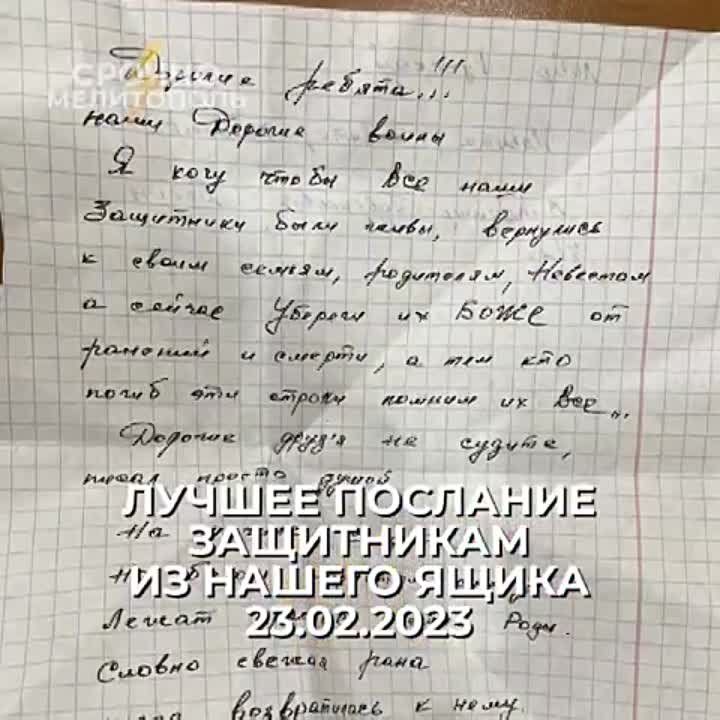 СРОЧНО
МЕЛИТОПОЛЬ
Дорогие ребята...!!!
наши Дорогие воины
Я хочу чтобы Все наши
Защитники были живы, вернулись
к своим семьям, родителям, Невестам
а сейчас Убереги их БОЖЕ от
ранений и смерти, а тем кто
погиб эти строки помним их Все...
Дорогие друз'я не судите,
писал просто душой
ЛУЧШЕЕ ПОСЛАНИЕ
На
ЗАЩИТНИКАМ
ИЗ НАШЕГО ЯЩИКА
Лежат Роды.
23.02.2023
Словно свежая рана
возвратилась к нему.